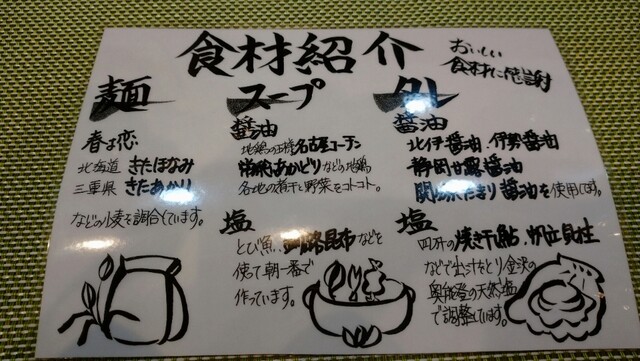 食材紹介
おいしい
食材に感謝
麺
春よ恋
北海道 きたほなみ
三重県 きたあかり
などの小麦を調合しています。
スープ
醤油
地鶏の王様名古屋コーチン
あかどりなどの地鶏
各地の煮干と野菜をコトコト。
塩
とび魚、昆布などを
使って朝一番で
作っています。
タレ
醤油
北伊醤油、伊勢醤油
静岡甘露醤油
たまり醤油を使用してます。
塩
焼き干鮎、帆立貝柱
などで出汁をとり金沢の
奥能登の天然塩
で調整しています。